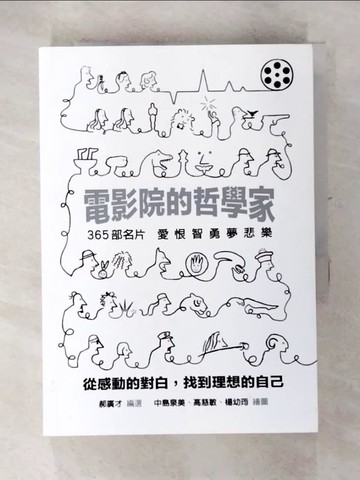 電影院的哲學家
365部名片 愛恨智勇夢悲樂
從感動的對白，找到理想的自己
郝廣才 編選 中島泉美、高慈敏、楊幼筠 繪圖